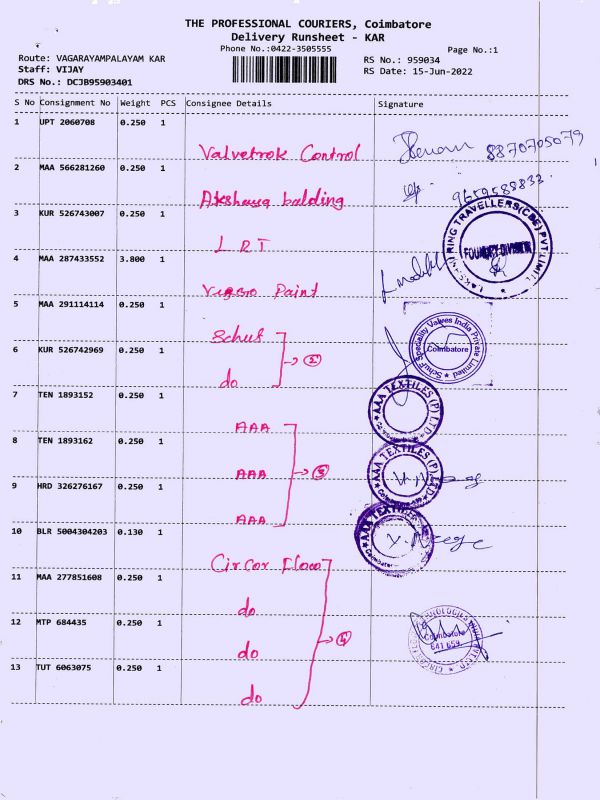 THE PROFESSIONAL COURIERS, Coimbatore
Delivery Runsheet - KAR
Phone No.:0422-3505555
Page No.:1
Route: VAGARAYAMPALAYAM KAR
RS No.: 959034
Staff: VIJAY
RS Date: 15-Jun-2022
DRS No.: DCJB95903401
S No Consignment No Weight PCS Consignee Details Signature
1 UPT 2060708 0.250 1
Valvetrok Control 8870705079
2 MAA 566281260 0.250 1
Akshaya balding 9659588832
3 KUR 526743007 0.250 1
LRT
RING TRAVELLERS(CBE) PVT LIMIT
FOUNDRY DIVISION
4 MAA 287433552 3.800 1
Paint
5 MAA 291114114 0.250 1
Schuf
Schuf Speciality Valves India Private Limited
Coimbatore
6 KUR 526742969 0.250 1
do 2
7 TEN 1893152 0.250 1
AAA
AAA TEXTILES (P) LTD
8 TEN 1893162 0.250 1
AAA 3
AAA TEXTILES (P) LTD
9 HRD 326276167 0.250 1
AAA
AAA TEXTILES
Coimbatore
10 BLR 5004304203 0.130 1
Circor Flow
11 MAA 277851608 0.250 1
do
12 MTP 684435 0.250 1
do 4
Coimbatore
641 659
13 TUT 6063075 0.250 1
do